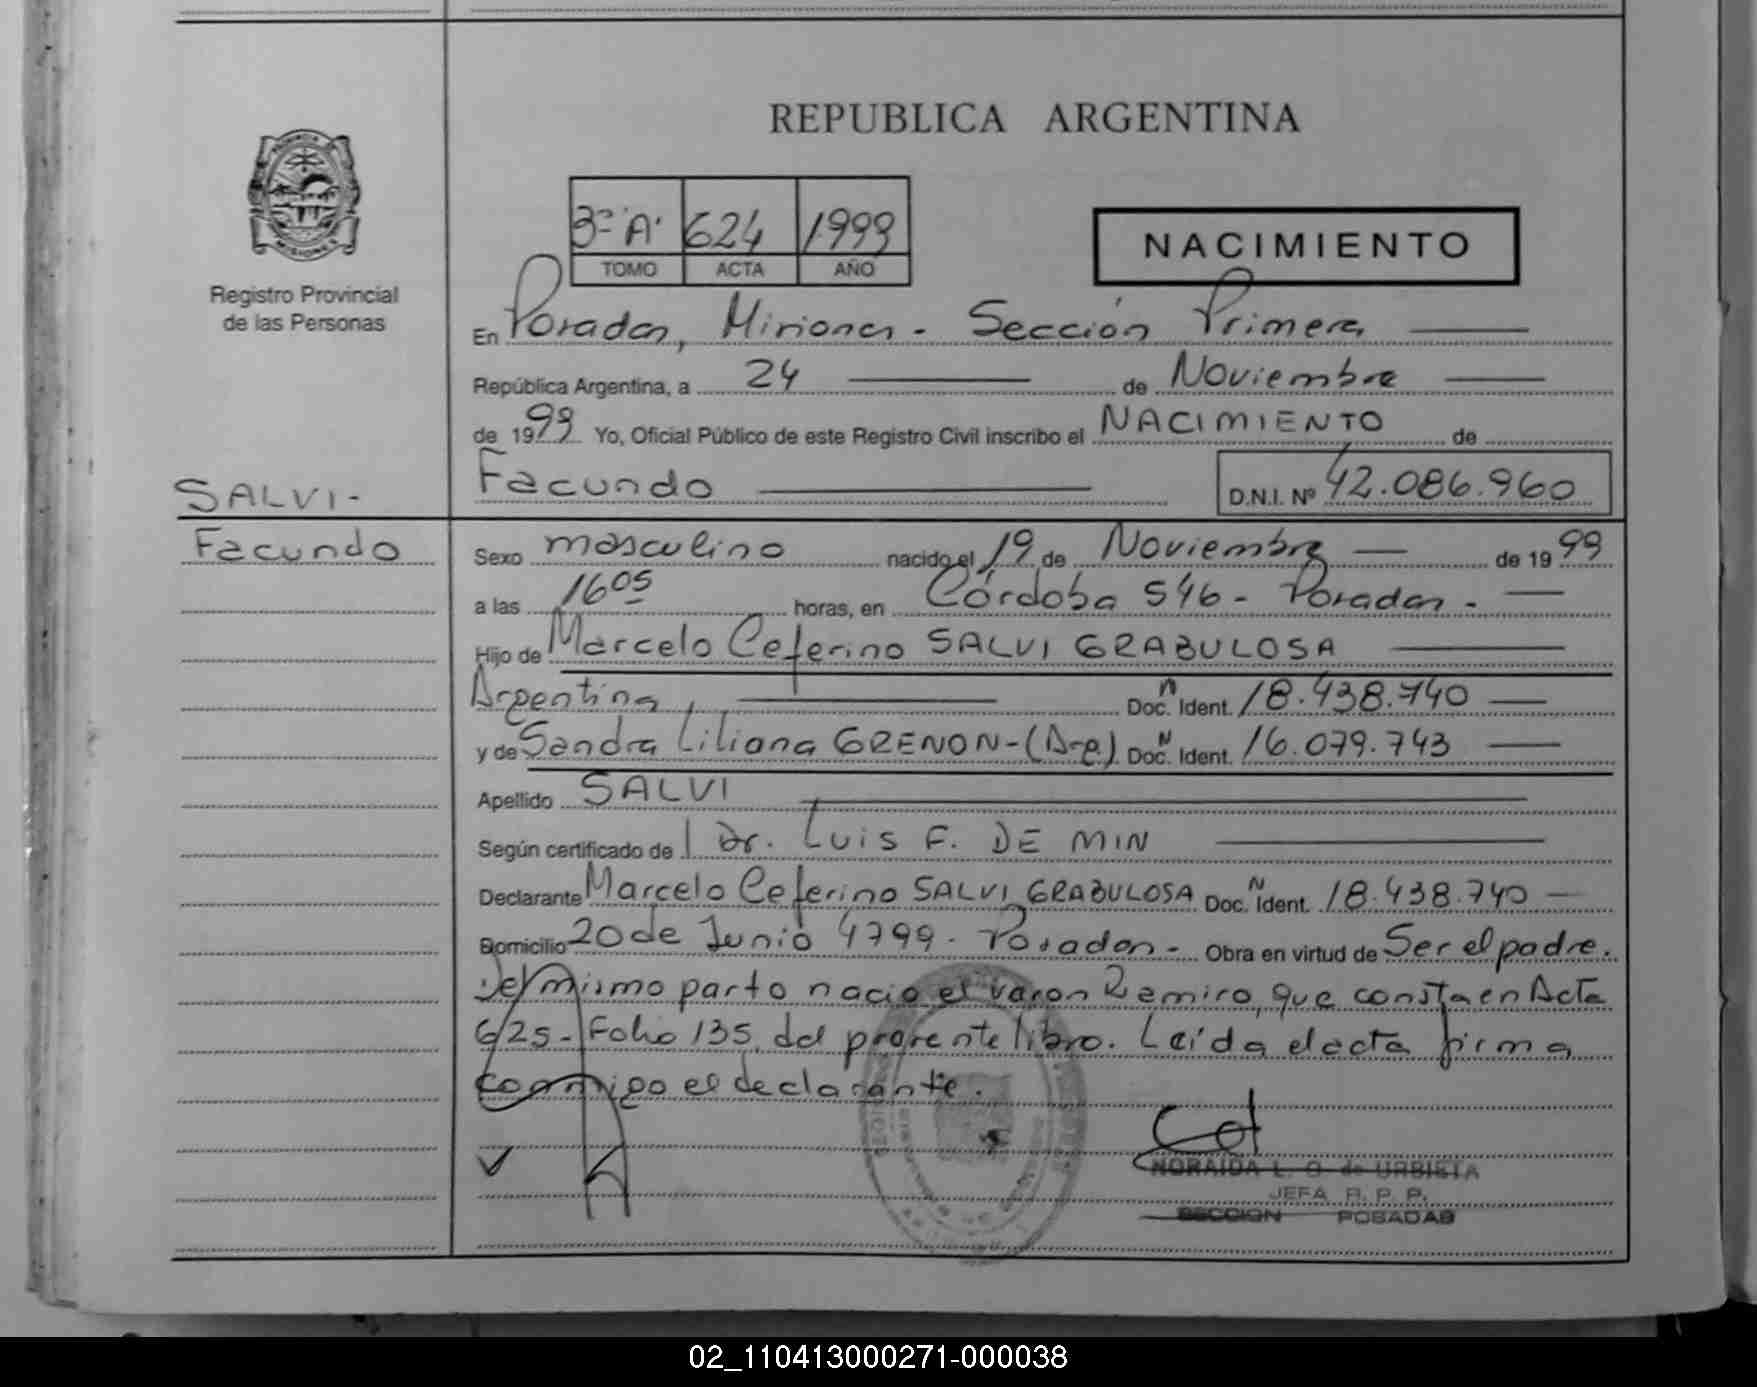 REPUBLICA ARGENTINA
PROVINCIA
MISIONES
Registro Provincial
de las Personas
3º "A" 624 1999
TOMO ACTA AÑO
NACIMIENTO
En Posadas, Misiones - Sección Primera
República Argentina, a 24 de Noviembre
de 1999 Yo, Oficial Público de este Registro Civil inscribo el NACIMIENTO de
Facundo D.N.I. Nº 42.086.960
SALVI -
Facundo
Sexo masculino nacido el 19 de Noviembre de 1999
a las 16 05 horas, en Córdoba 546 - Posadas -
Hijo de Marcelo Ceferino SALVI GRABULOSA
Argentina, Doc. N Ident. 18.438.740
y de Sandra Liliana GRENON - (Arg.) Doc. N Ident. 16.079.743
Apellido SALVI
Según certificado del Dr. Luis F. DE MIN
Declarante Marcelo Ceferino SALVI GRABULOSA Doc. N Ident. 18.438.740
Domicilio 20 de Junio 4799 - Posadas - Obra en virtud de Ser el padre.
Del mismo parto nacio el varon Ramiro, que consta en Acta
625 - Folio 135, del presente libro. Leída el acta firma
conmigo el declarante.
NORAIDA L. O. de URBIETA
JEFA R. P. P.
SECCION POSADAS
02_110413000271-000038